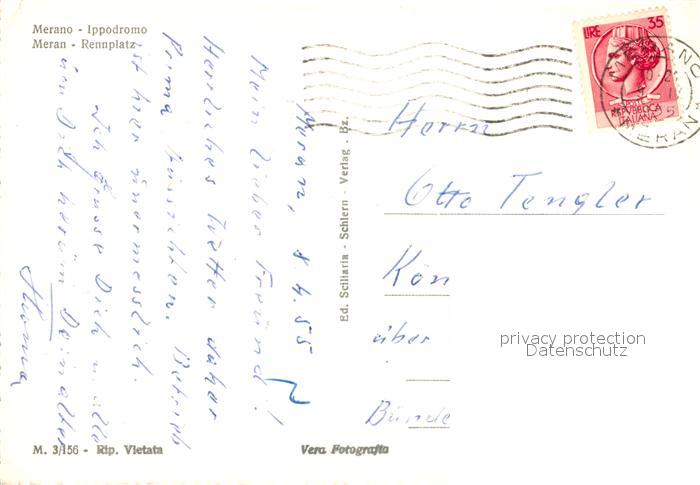 Merano - Ippodromo
Meran - Rennplatz
Meran, 8.4.55
Mein lieber Freund!
Herrliches Wetter daher
Prima Aussichten. Betrieb
ist hier unermesslich.
Ich grüsse Dich u. alle
um Dich herum Dein alter
Ed. Sciliaria - Schlern - Verlag - Bz.
LIRE 35
REPUBBLICA
ITALIANA
MERANO
MERANO
Herrn
Otto Tengler
Kön
über
Bünde
privacy protection
Datenschutz
M. 3/156 - Rip. Vietata
Vera Fotografia